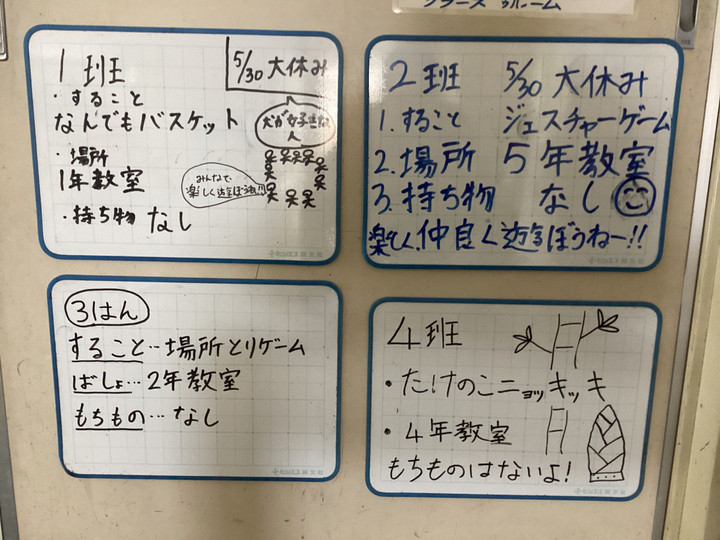 1班
5/30 大休み
・すること
なんでもバスケット
犬が好きな
人
・場所
1年教室
みんなで
楽しく遊ぼう!!
・持ち物 なし
2班 5/30 大休み
1.すること ジェスチャーゲーム
2.場所 5年教室
3.持ち物 なし
楽しく、仲良く遊ぼうねー!!
3はん
すること…場所とりゲーム
ばしょ…2年教室
もちもの…なし
4班
・たけのこニョッキッキ
・4年教室
もちものはないよ!